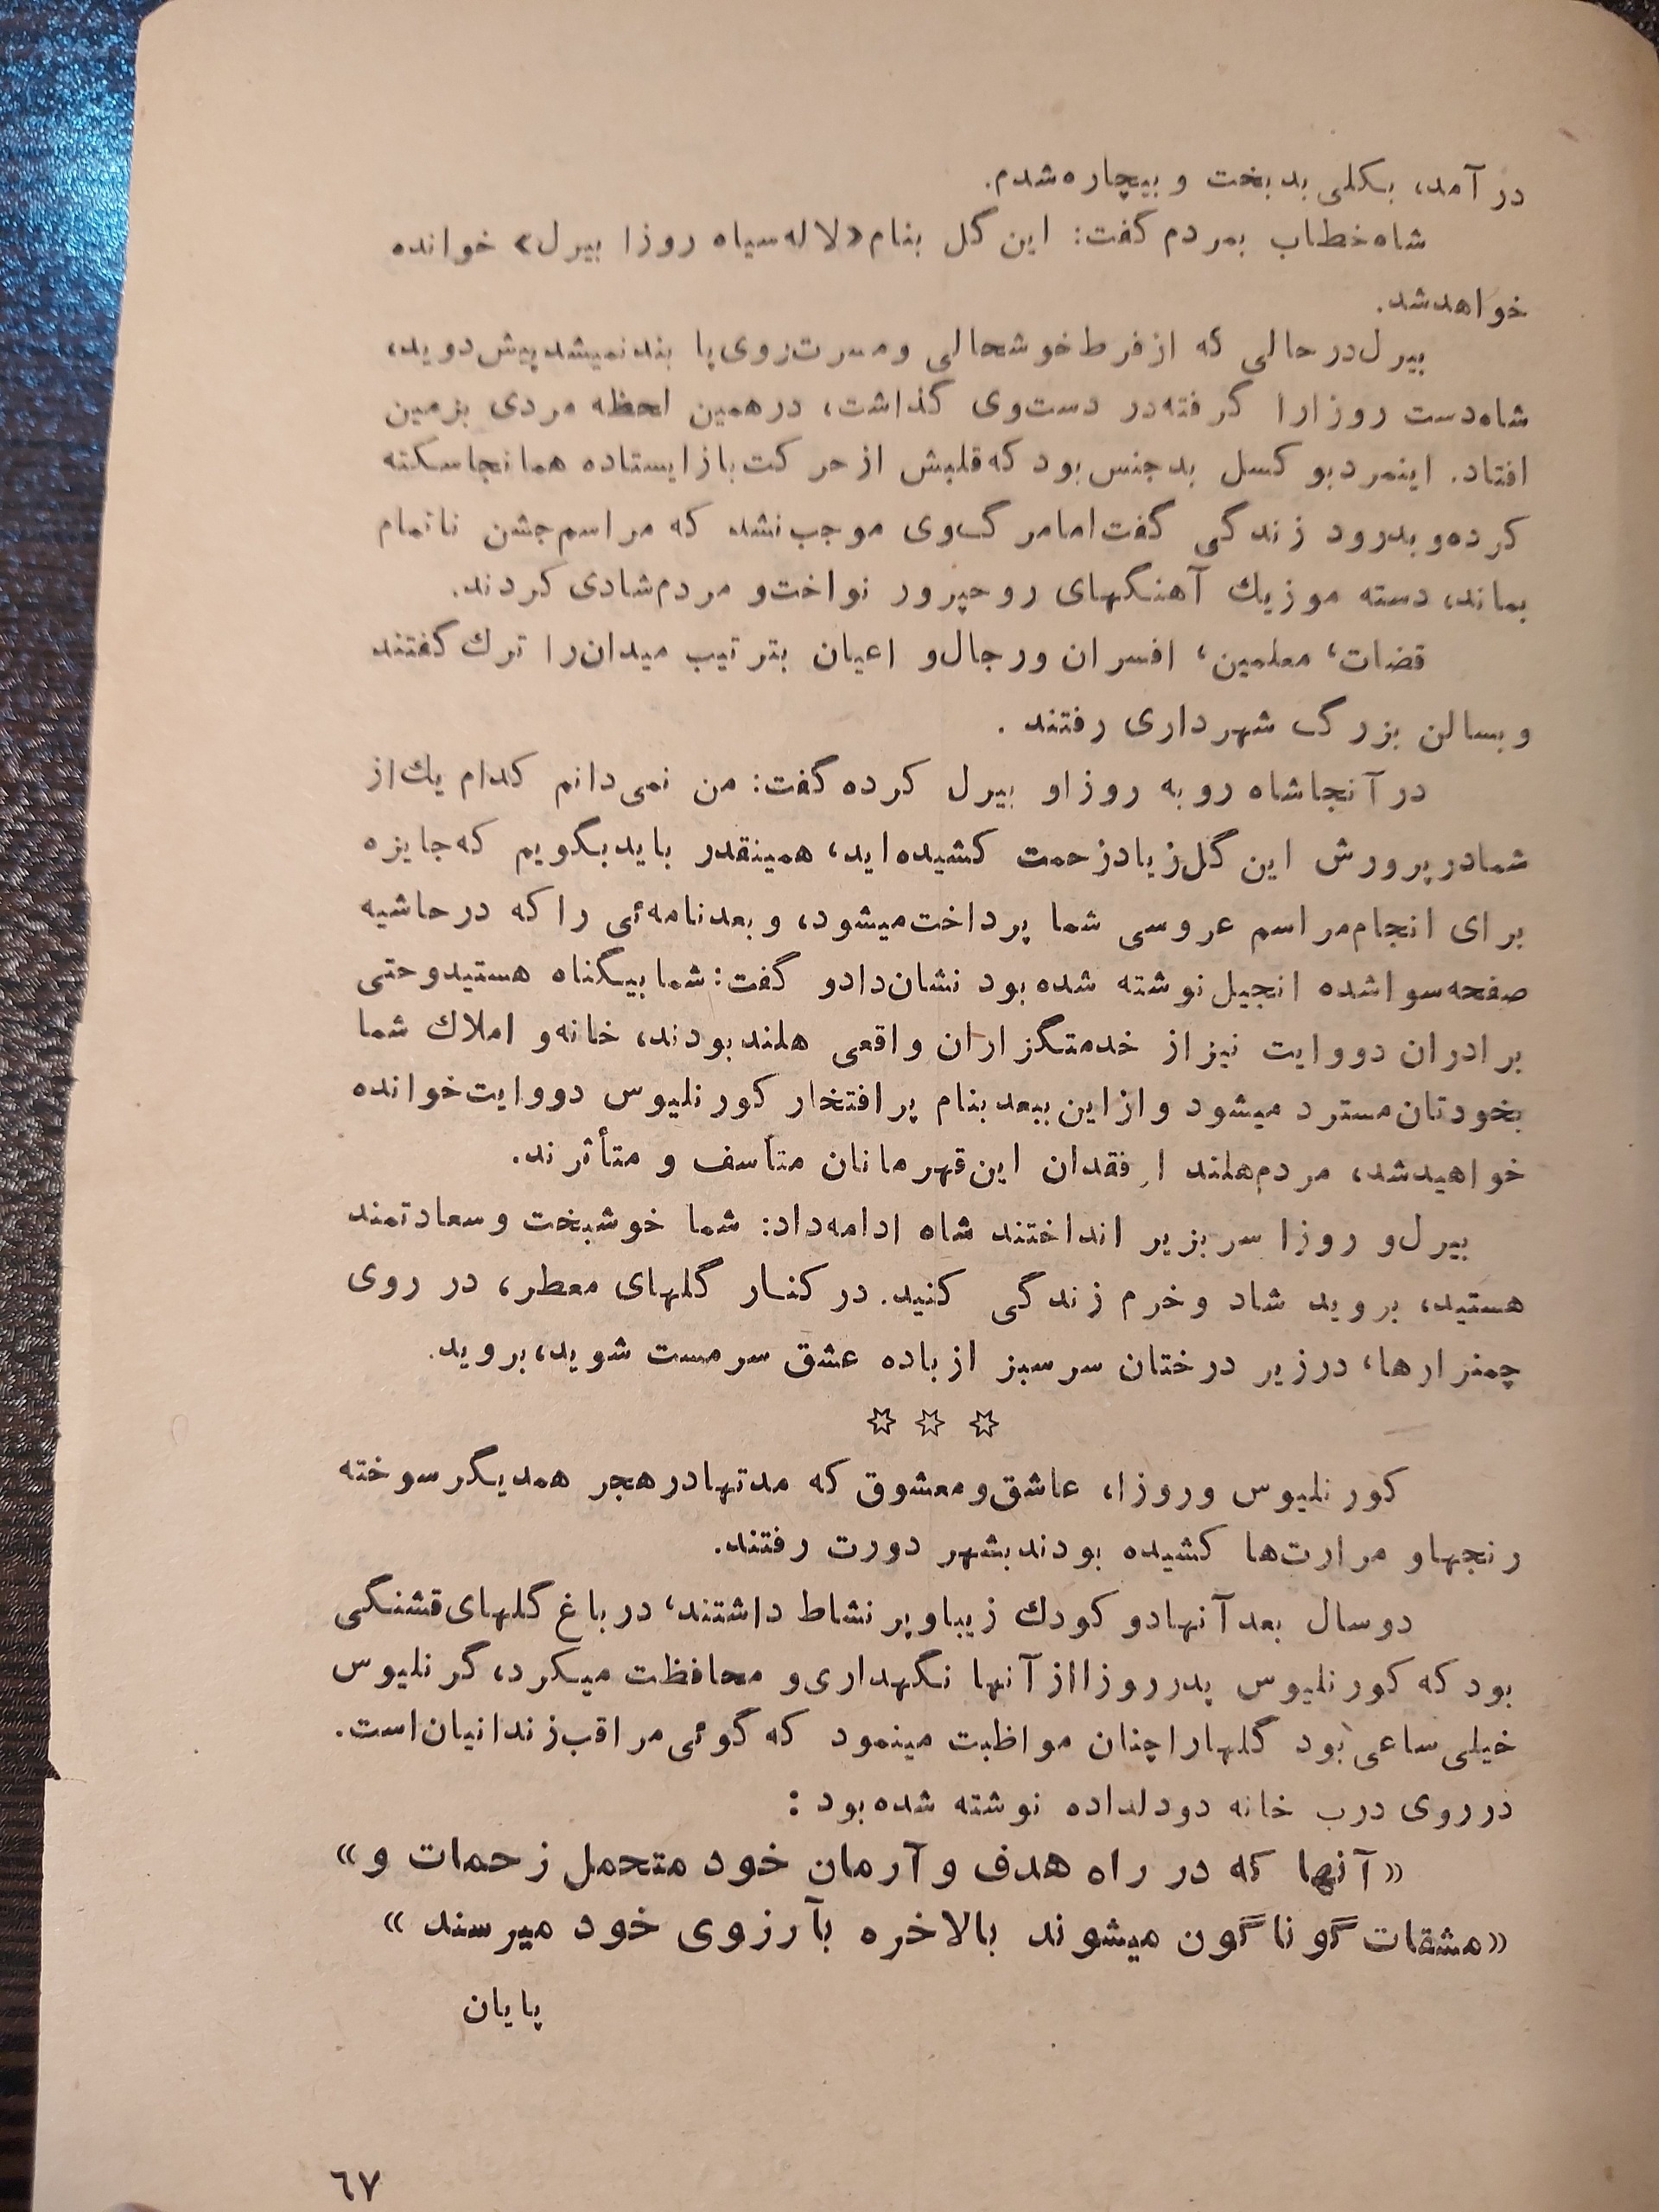 در آمد، بکلی بدبخت و بیچاره شدم.
شاه خطاب بمردم گفت: این گل بنام «لاله سیاه روزا بیرل» خوانده
خواهد شد.
بیرل در حالی که از فرط خوشحالی و مسرت روی پا بند نمیشد پیش دوید،
شاه دست روزا را گرفته در دست وی گذاشت، در همین لحظه مردی بزمین
افتاد. اینمرد بوکسل بدجنس بود که قلبش از حرکت باز ایستاده همانجا سکته
کرده و بدرود زندگی گفت اما مرگ وی موجب نشد که مراسم جشن ناتمام
بماند، دسته موزیك آهنگهای روحپرور نواخت و مردم شادی کردند.
قضات، معلمین، افسران و رجال و اعیان بترتیب میدان را ترك گفتند
و بسالن بزرگ شهرداری رفتند .
در آنجا شاه رو به روزا و بیرل کرده گفت: من نمی‌دانم کدام یك از
شما در پرورش این گل زیاد زحمت کشیده‌اید، همینقدر باید بگویم که جایزه
برای انجام مراسم عروسی شما پرداخت میشود، و بعد نامه‌ئی را که در حاشیه
صفحه سوا شده انجیل نوشته شده بود نشان داد و گفت: شما بیگناه هستید و حتی
برادران دووایت نیز از خدمتگزاران واقعی هلند بودند، خانه و املاك شما
بخودتان مسترد میشود و از این ببعد بنام پرافتخار کورنلیوس دووایت خوانده
خواهید شد، مردم هلند از فقدان این قهرمانان متأسف و متأثرند.
بیرل و روزا سر بزیر انداختند شاه ادامه داد: شما خوشبخت و سعادتمند
هستید، بروید شاد و خرم زندگی کنید. در کنار گلهای معطر، در روی
چمنزارها، در زیر درختان سرسبز از باده عشق سرمست شوید، بروید.
✡ ✡ ✡
کورنلیوس و روزا، عاشق و معشوق که مدتها در هجر همدیگر سوخته
رنجها و مرارت‌ها کشیده بودند بشهر دورت رفتند.
دو سال بعد آنها دو کودك زیبا و پر نشاط داشتند، در باغ گلهای قشنگی
بود که کورنلیوس پدر روزا از آنها نگهداری و محافظت میکرد، گرنلیوس
خیلی ساعی بود گلها را چنان مواظبت مینمود که گوئی مراقب زندانیان است.
در روی درب خانه دو دلداده نوشته شده بود :
«آنها که در راه هدف و آرمان خود متحمل زحمات و»
«مشقات گوناگون میشوند بالاخره بآرزوی خود میرسند »
پایان
٦٧